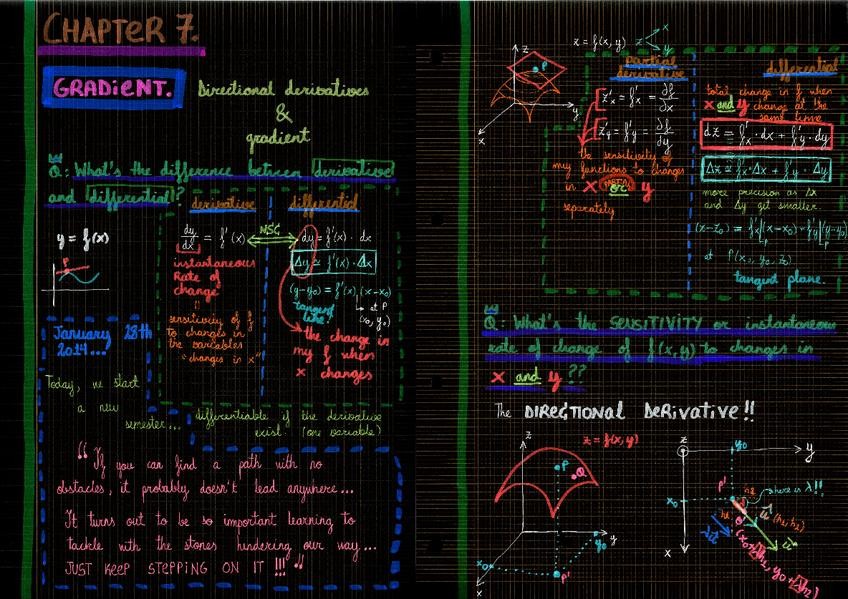 CHAPTER 7.
GRADIENT.
Directional derivatives
&
gradient
Q: What's the difference between derivative
and differential?
derivative
differential
y = f(x)
dy/dx = f'(x)
NSC
dy = f'(x) · dx
Δy ≃ f'(x) · Δx
instantaneous
Rate of
change
(y-y₀) = f'(x₀)(x-x₀)
tangent
line!
at P
(x₀, y₀)
sensitivity of f
to changes in
the variables
"changes in x"
the change in
my f when
x changes
P
January 28th
2014...
Today, we start
a new
semester...
differentiable if the derivative
exist (one variable)
"If you can find a path with no
obstacles, it probably doesn't lead anywhere...
It turns out to be so important learning to
tackle with the stones hindering our way...
JUST KEEP STEPPING ON IT !!!"
z = f(x, y)
z
x
y
z
P
y
x
partial
derivative
z'x = f'x = ∂f/∂x
z'y = f'y = ∂f/∂y
the sensitivity of
my functions to changes
in x or y
separately
differential
total change in f when
x and y change at the
same time
dz = f'x · dx + f'y · dy
Δz ≃ f'x · Δx + f'y · Δy
more precision as Δx
and Δy get smaller.
(z-z₀) = f'x|p (x-x₀) + f'y|p (y-y₀)
at P(x₀, y₀, z₀)
tangent plane.
Q: What's the SENSITIVITY or instantaneous
rate of change of f(x,y) to changes in
x and y ??
The DIRECTIONAL DERIVATIVE!!
z
z = f(x,y)
P
Q
y₀
y
x₀
P'
x
z
y₀
y
x₀
P'
h₂
here is λ!!
h₁
u (h₁, h₂)
x